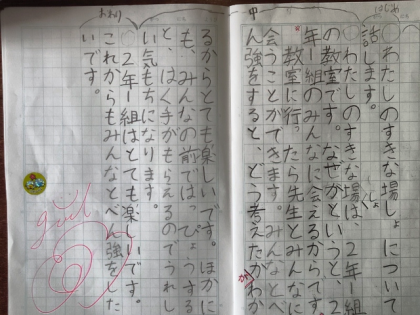 はじめ
○わたしのすきな場しょについて
話します。
中
○わたしのすきな場しょは、2年1組
の教室です。なぜかというと、2
年一組のみんなに会えるからです。
教室に行ったら先生とみんなに
会うことができます。みんなとべ
ん強をすると、どう考えたかがわか
るからとても楽しいです。ほかに
も、みんなの前ではっぴょうする
と、はく手がもらえるのでうれし
い気もちになります。
おわり
○2年1組はとても楽しいです。
これからもみんなとべん強をした
いです。
good